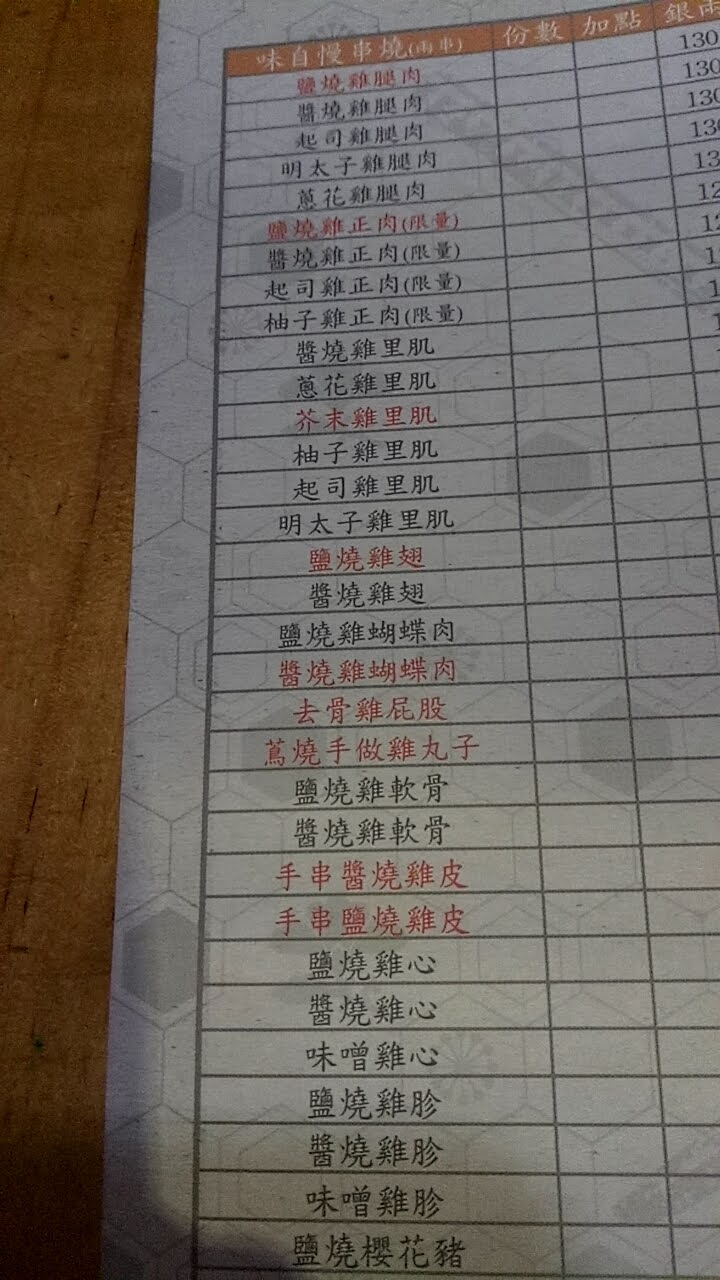 味自慢串燒(兩串) 份數 加點 銀兩
鹽燒雞腿肉 130
醬燒雞腿肉 130
起司雞腿肉 130
明太子雞腿肉 130
蔥花雞腿肉 13
鹽燒雞正肉(限量) 12
醬燒雞正肉(限量) 12
起司雞正肉(限量) 1
柚子雞正肉(限量) 1
醬燒雞里肌
蔥花雞里肌
芥末雞里肌
柚子雞里肌
起司雞里肌
明太子雞里肌
鹽燒雞翅
醬燒雞翅
鹽燒雞蝴蝶肉
醬燒雞蝴蝶肉
去骨雞屁股
蔦燒手做雞丸子
鹽燒雞軟骨
醬燒雞軟骨
手串醬燒雞皮
手串鹽燒雞皮
鹽燒雞心
醬燒雞心
味噌雞心
鹽燒雞胗
醬燒雞胗
味噌雞胗
鹽燒櫻花豬